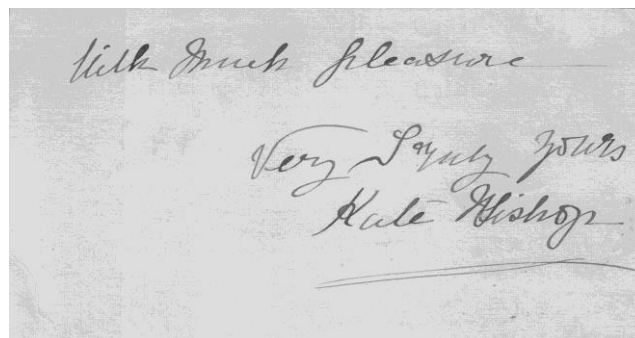 With Much pleasure
Very Truly Yours
Kate Bishop